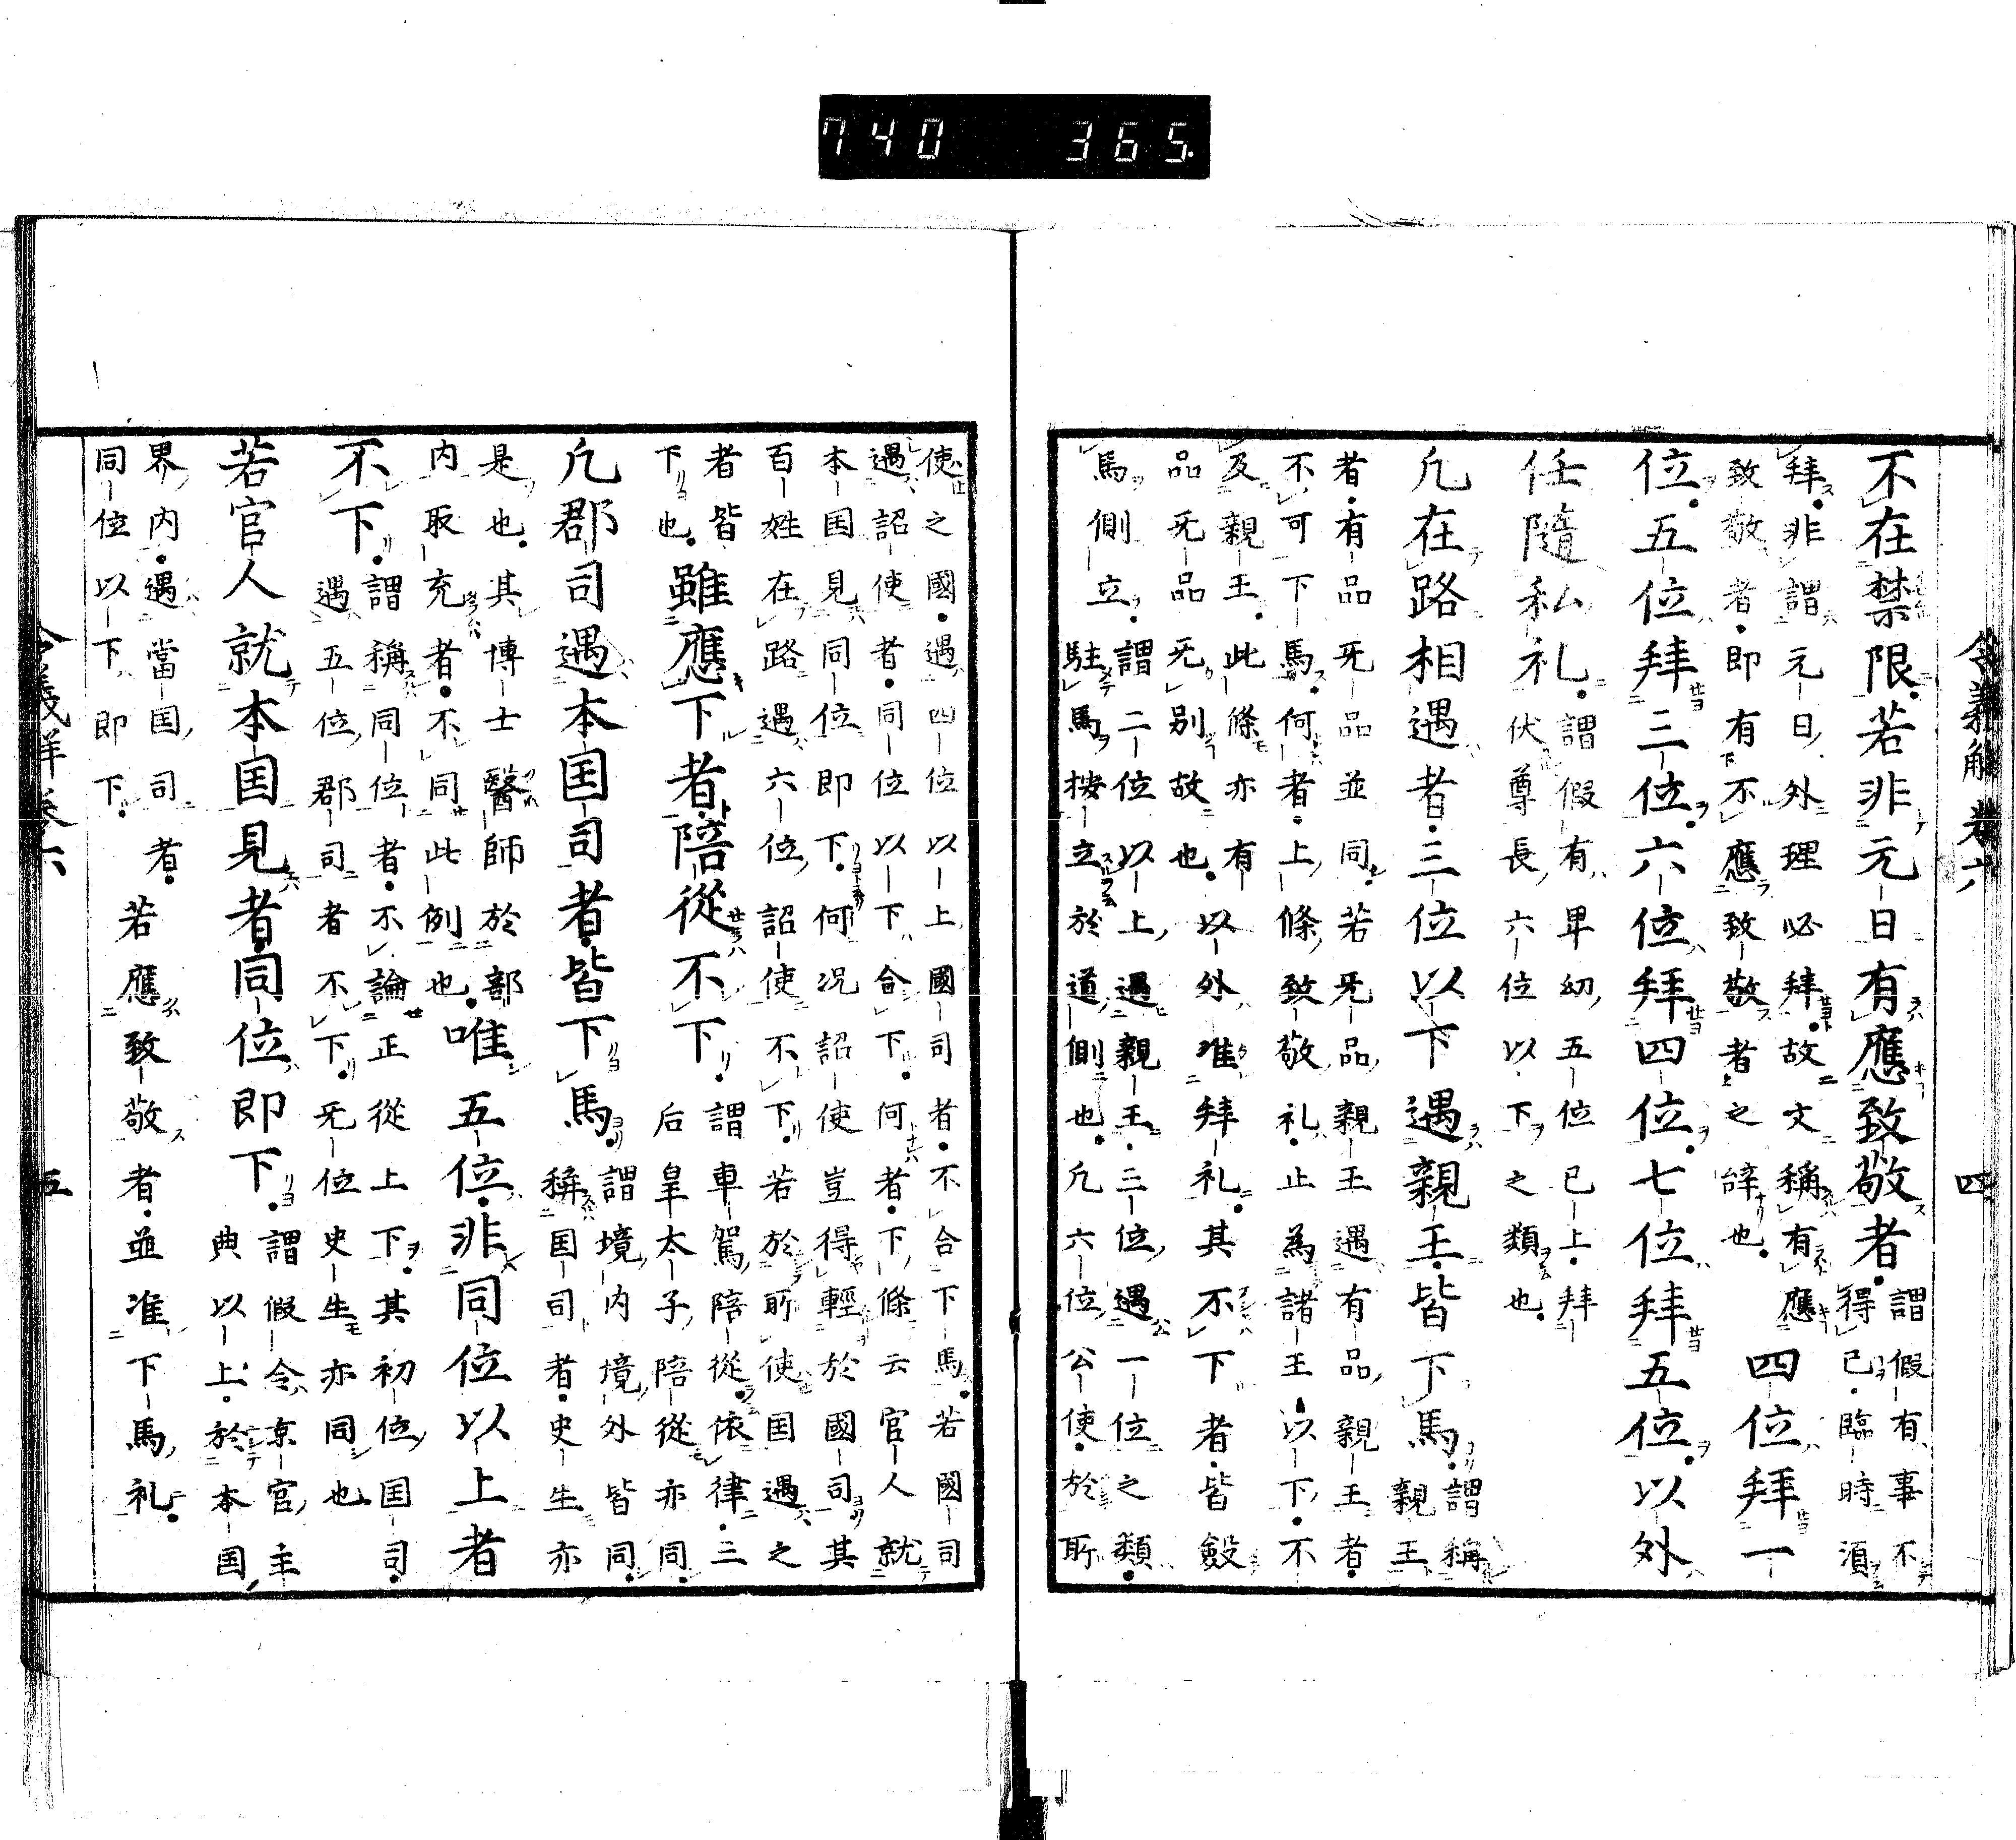 740 365.
令義解卷六 四
不在禁限若非元日有應致敬者謂假有事不
得已臨時湏
拜非謂元日外理必拜故文稱有應
致敬者即有不應致敬者之辞也四位拜一
位五位拜三位六位拜四位七位拜五位以外
任隨私礼謂假有卑幼五位已上拜
伏尊長六位以下之類也
凢在路相遇者三位以下遇親王皆下馬謂稱
親王
者有品无品並同若无品親王遇有品親王者
不可下馬何者上條致敬礼止為諸王以下不
及親王此條亦有
品无品无別故也以外准拜礼其不下者皆斂
馬側立謂二位以上遇親王三位遇一位之類
駐馬桉立於道側也凢六位公使於所
使之國遇四位以上國司者不合下馬若國司
遇詔使者同位以下合下何者下條云官人就
本囯見同位即下何况詔使豈得輕於國司其
百姓在路遇六位詔使不下若於所使囯遇之
者皆
下也雖應下者陪從不下謂車駕陪從依律三
后皇太子陪從亦同
凢郡司遇本囯司者皆下馬謂境内境外皆同
稱囯司者史生亦
是也其博士醫師於部
内取充者不同此例也唯五位非同位以上者
不下謂稱同位者不論正從上下其初位囯司
遇五位郡司者不下无位史生亦同也
若官人就本囯見者同位即下謂假令京官主
典以上於本囯
界内遇當囯司者
同位以下即下若應致敬者並准下馬礼
令義解卷六 五